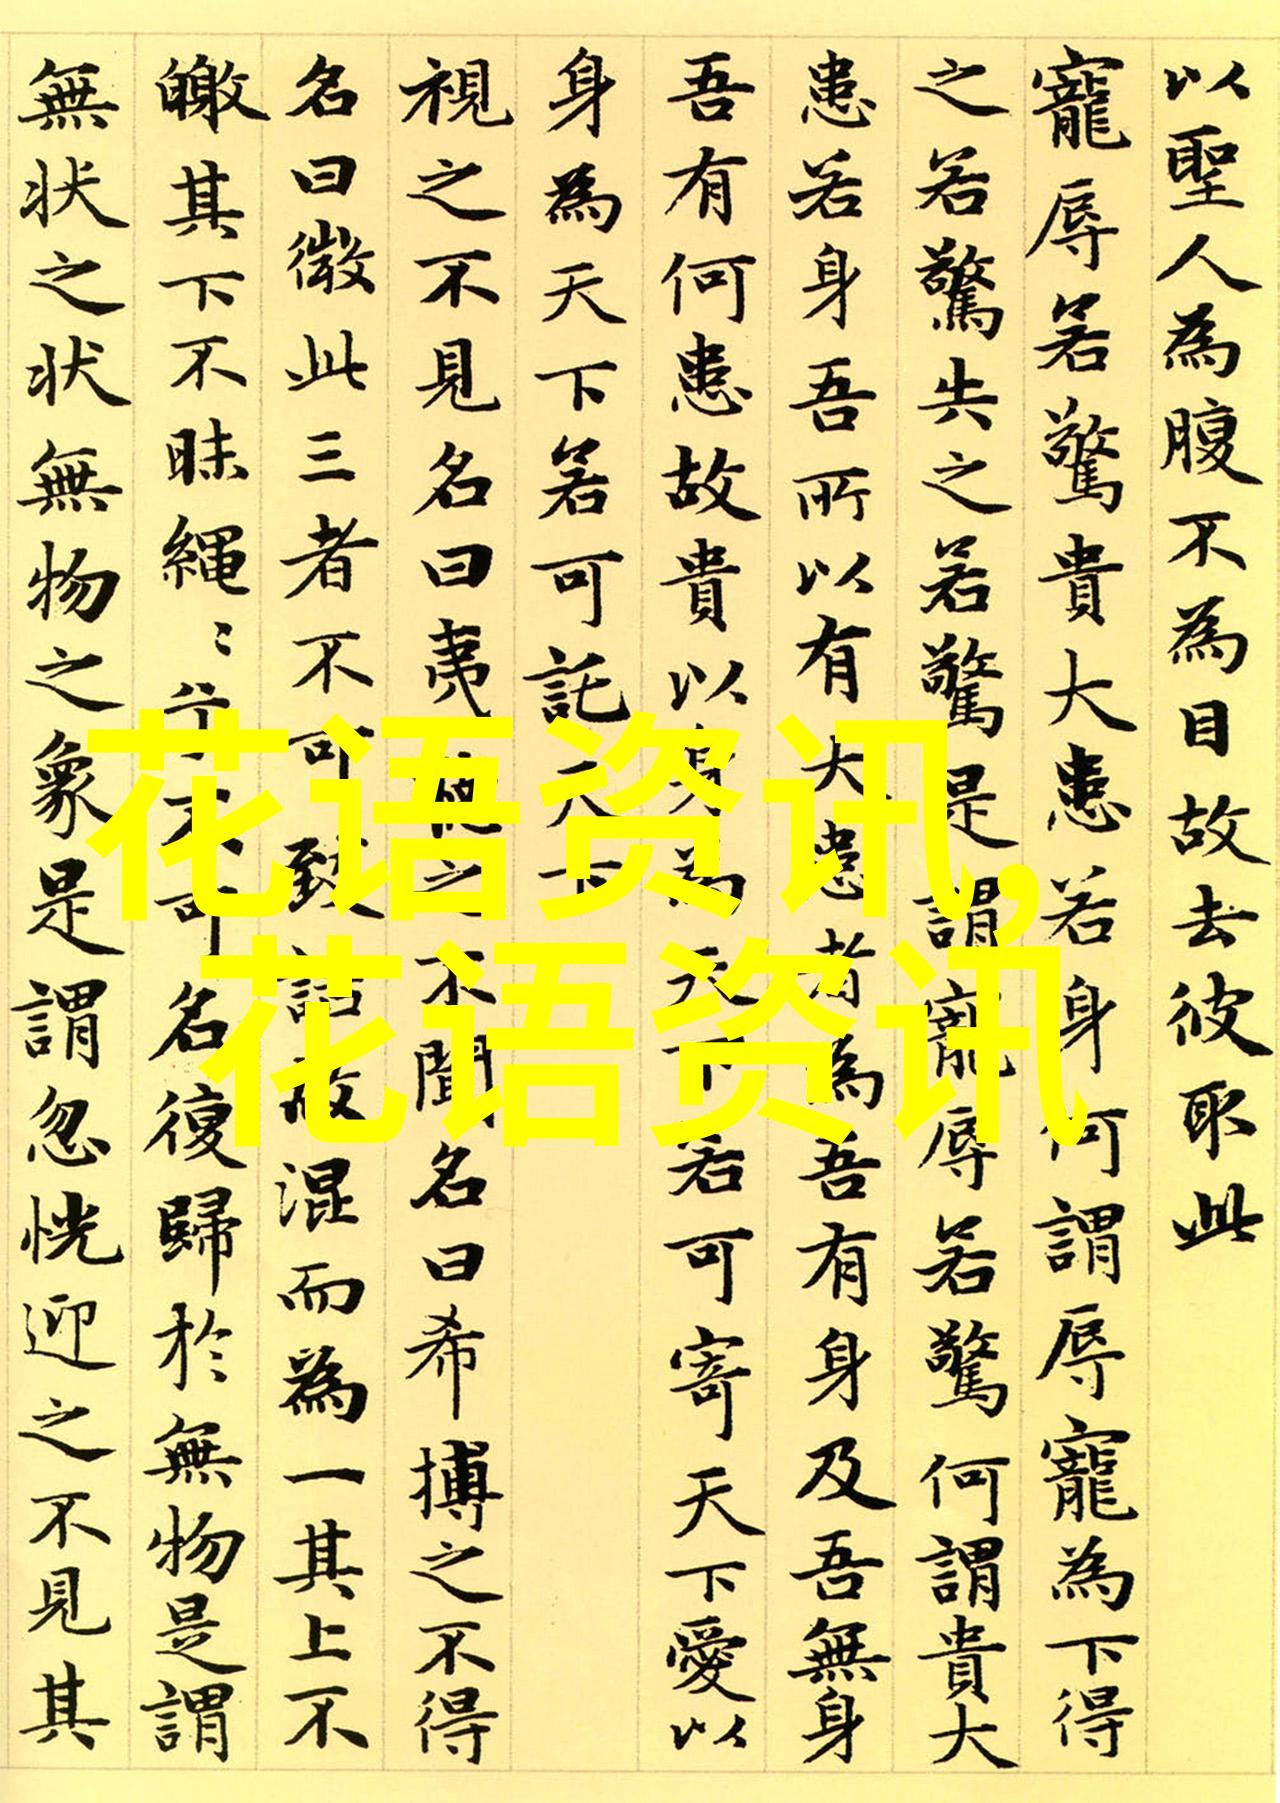 以聖人為腹不為目故去彼取此
寵辱若驚貴大患若身何謂辱寵為下得
之若驚失之若驚是謂寵辱若驚何謂貴大
患若身吾所以有大患者為吾有身及吾無身
吾有何患故貴以身為天下若可寄天下愛以
身為天下若可託天下
視之不見名曰夷聽之不聞名曰希搏之不得
名曰微此三者不可致詰故混而為一其上不
皦其下不昧繩〻兮不可名復歸於無物是謂
無狀之狀無物之象是謂忽恍迎之不見其
花语资讯,
花语资讯